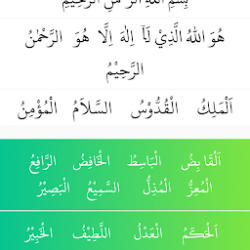 بِسْمِ اللهِ الرَّحْمٰنِ الرَّحِيْمِ
هُوَ اللهُ الَّذِيْ لَآ اِلٰهَ اِلَّا هُوَ الرَّحْمٰنُ
الرَّحِيْمُ
اَلْمَلِكُ الْقُدُّوْسُ السَّلَامُ الْمُؤْمِنُ
اَلْقَا بِضُ الْبَاسِطُ الْخَافِضُ الرَّافِعُ
الْمُعِزُّ الْمُذِلُّ السَّمِيْعُ الْبَصِيْرُ
اَلْحَكَمُ الْعَدْلُ اللَّطِيْفُ الْخَبِيْرُ